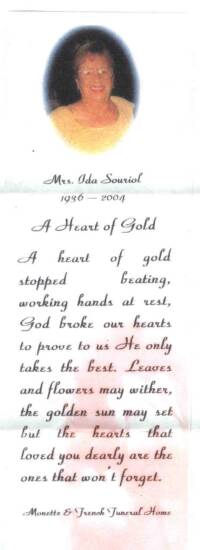 Mrs. Ida Souriol
1936 — 2004
A Heart of Gold
A heart of gold
stopped beating,
working hands at rest,
God broke our hearts
to prove to us He only
takes the best. Leaves
and flowers may wither,
the golden sun may set
but the hearts that
loved you dearly are the
ones that won't forget.
Monette & French Funeral Home